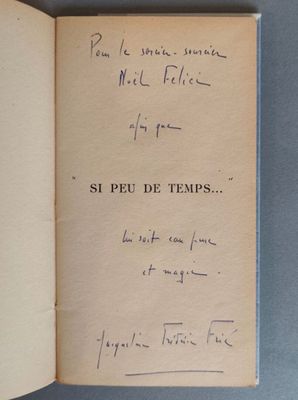 Pour le sorcier-sourcier
Noël Felici
afin que
"SI PEU DE TEMPS..."
lui soit eau pure
et magie.
Jacqueline Frédéric Frié